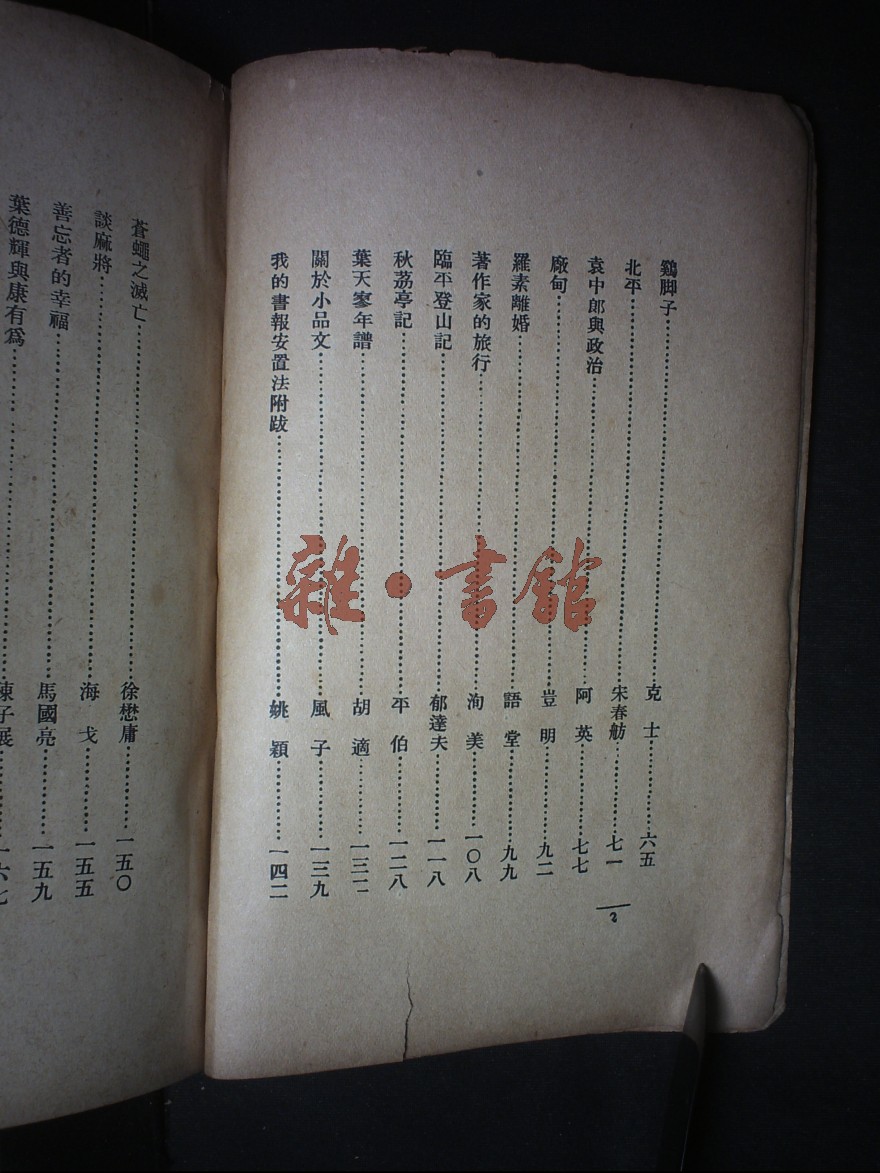 鷄脚子……克士……六五
北平……宋春舫……七一
袁中郎與政治……阿英……七七
廠甸……豈明……九二
羅素離婚……語堂……九九
著作家的旅行……洵美……一〇八
臨平登山記……郁達夫……一一八
秋荔亭記……平伯……一二八
葉天寥年譜……胡適……一三一
關於小品文……風子……一三九
我的書報安置法附跋……姚穎……一四二
2
蒼蠅之滅亡……徐懋庸……一五〇
談麻將……海戈……一五五
善忘者的幸福……馬國亮……一五九
葉德輝與康有爲……陳子展……一六七
雜·書館